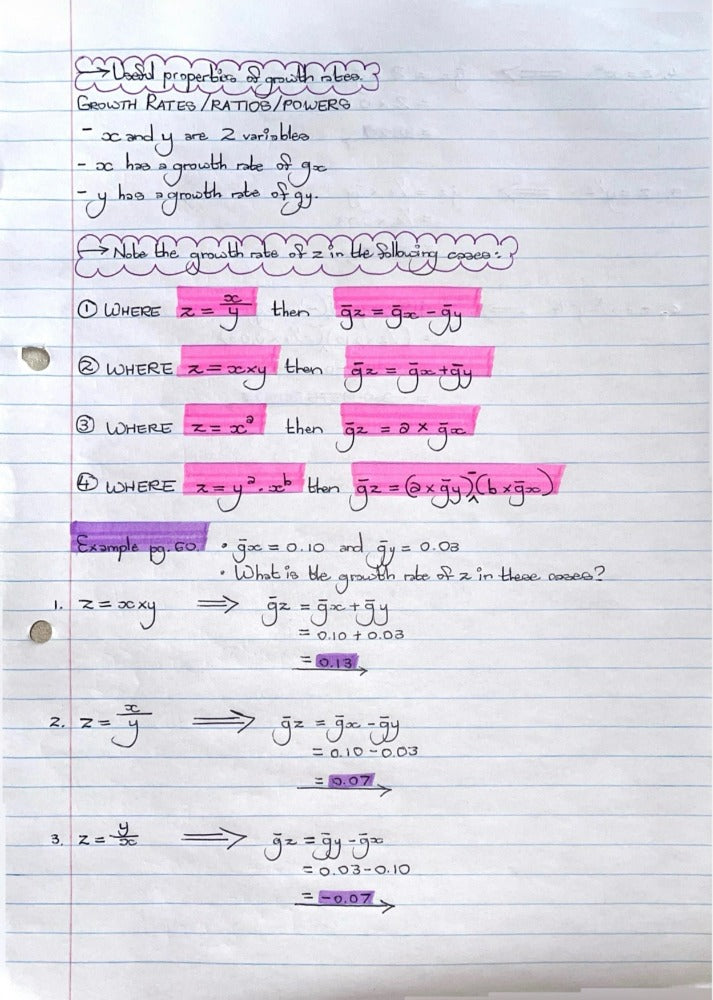 → Useful properties of growth rates.
GROWTH RATES/RATIOS/POWERS
- x and y are 2 variables
- x has a growth rate of gx
- y has a growth rate of gy.
→ Note the growth rate of z in the following cases:
① WHERE z = x/y then ḡz = ḡx - ḡy
② WHERE z = x×y then ḡz = ḡx + ḡy
③ WHERE z = xᵃ then ḡz = a × ḡx
④ WHERE z = yᵃ · xᵇ then ḡz = (a × ḡy) - (b × ḡx)
Example pg. 60. • ḡx = 0.10 and ḡy = 0.03
• What is the growth rate of z in these cases?
1. z = x×y ⟹ ḡz = ḡx + ḡy
= 0.10 + 0.03
= 0.13
2. z = x/y ⟹ ḡz = ḡx - ḡy
= 0.10 - 0.03
= 0.07
3. z = y/x ⟹ ḡz = ḡy - ḡx
= 0.03 - 0.10
= -0.07